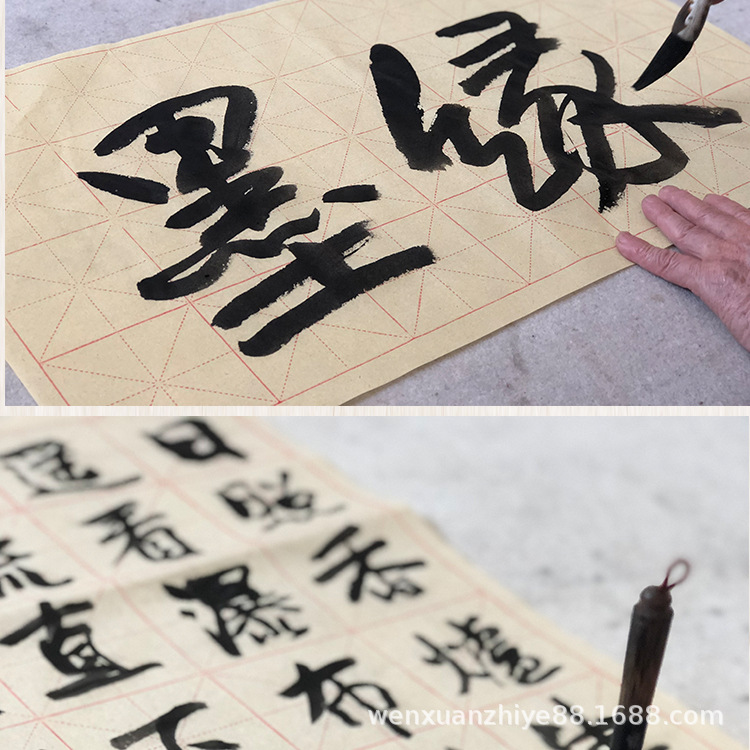 墨缘
日照香爐
遥看瀑布
流直下
wenxuanzhiye88.1688.com